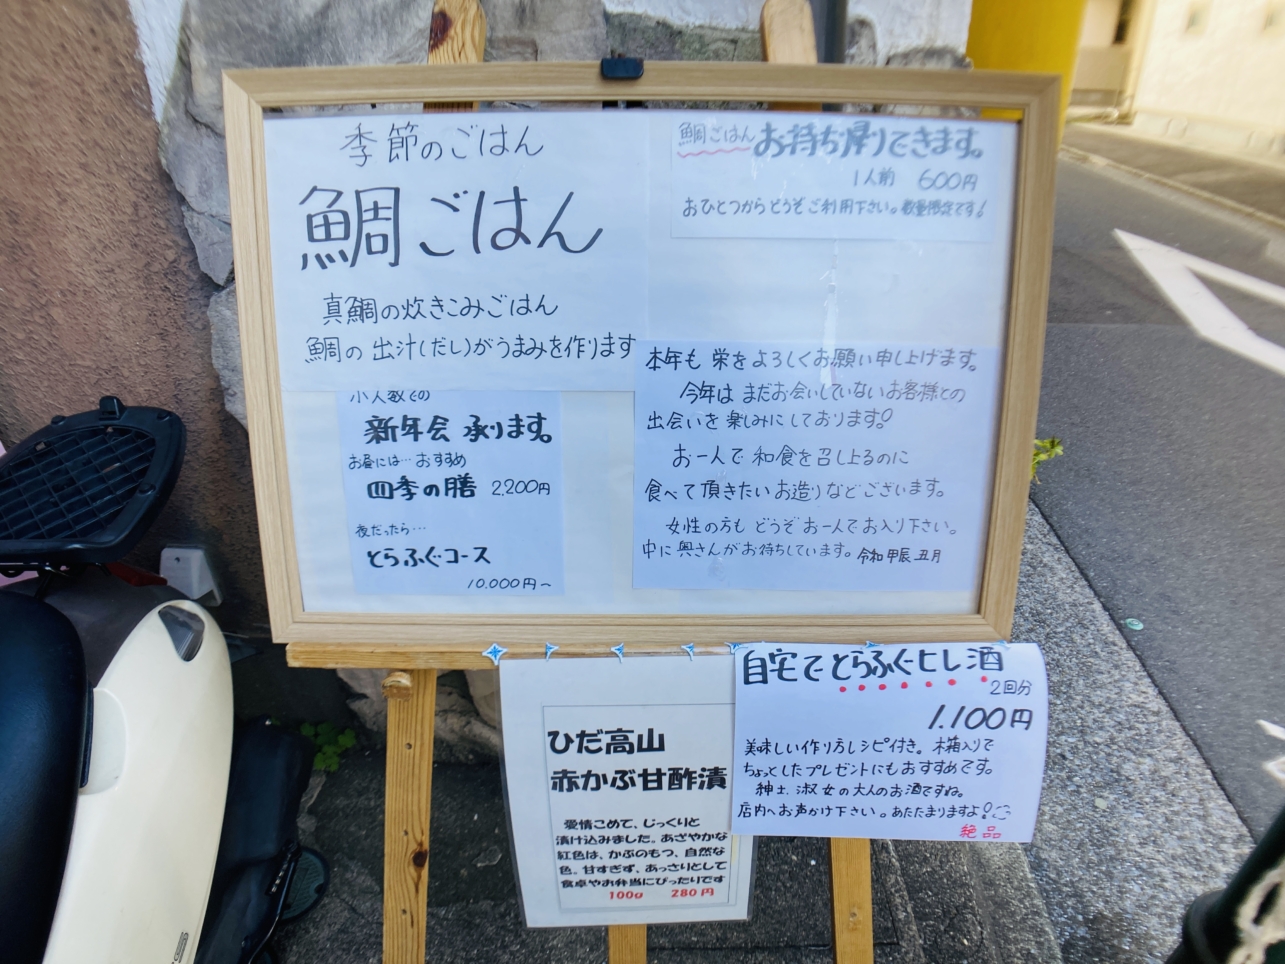 季節のごはん
鯛ごはん
真鯛の炊きこみごはん
鯛の出汁(だし)がうまみを作ります
鯛ごはんお持ち帰りできます。
1人前 600円
おひとつからどうぞご利用下さい。数量限定です!
小人数での
新年会 承ります。
お昼には…おすすめ
四季の膳 2,200円
夜だったら…
とらふぐ・コース
10.000円~
本年も 栄をよろしくお願い申し上げます。
今年は まだお会いしていないお客様との
出会いを楽しみにしております!
お一人で 和食を召し上るのに
食べて頂きたいお造りなどございます。
女性の方も どうぞお一人でお入り下さい。
中に奥さんがお待ちしています。令和 甲辰 五月
自宅でとらふぐヒレ酒
2回分
1.100円
美味しい作り方レシピ付き。木箱入りで
ちょっとしたプレゼントにもおすすめです。
紳士、淑女の大人のお酒ですね。
店内へお声かけ下さい。あたたまりますよ!
絶品
ひだ高山
赤かぶ甘酢漬
愛情こめて、じっくりと
漬け込みました。あざやかな
紅色は、かぶのもつ、自然な
色。甘すぎず、あっさりとして
食卓やお弁当にぴったりです
100g 280円